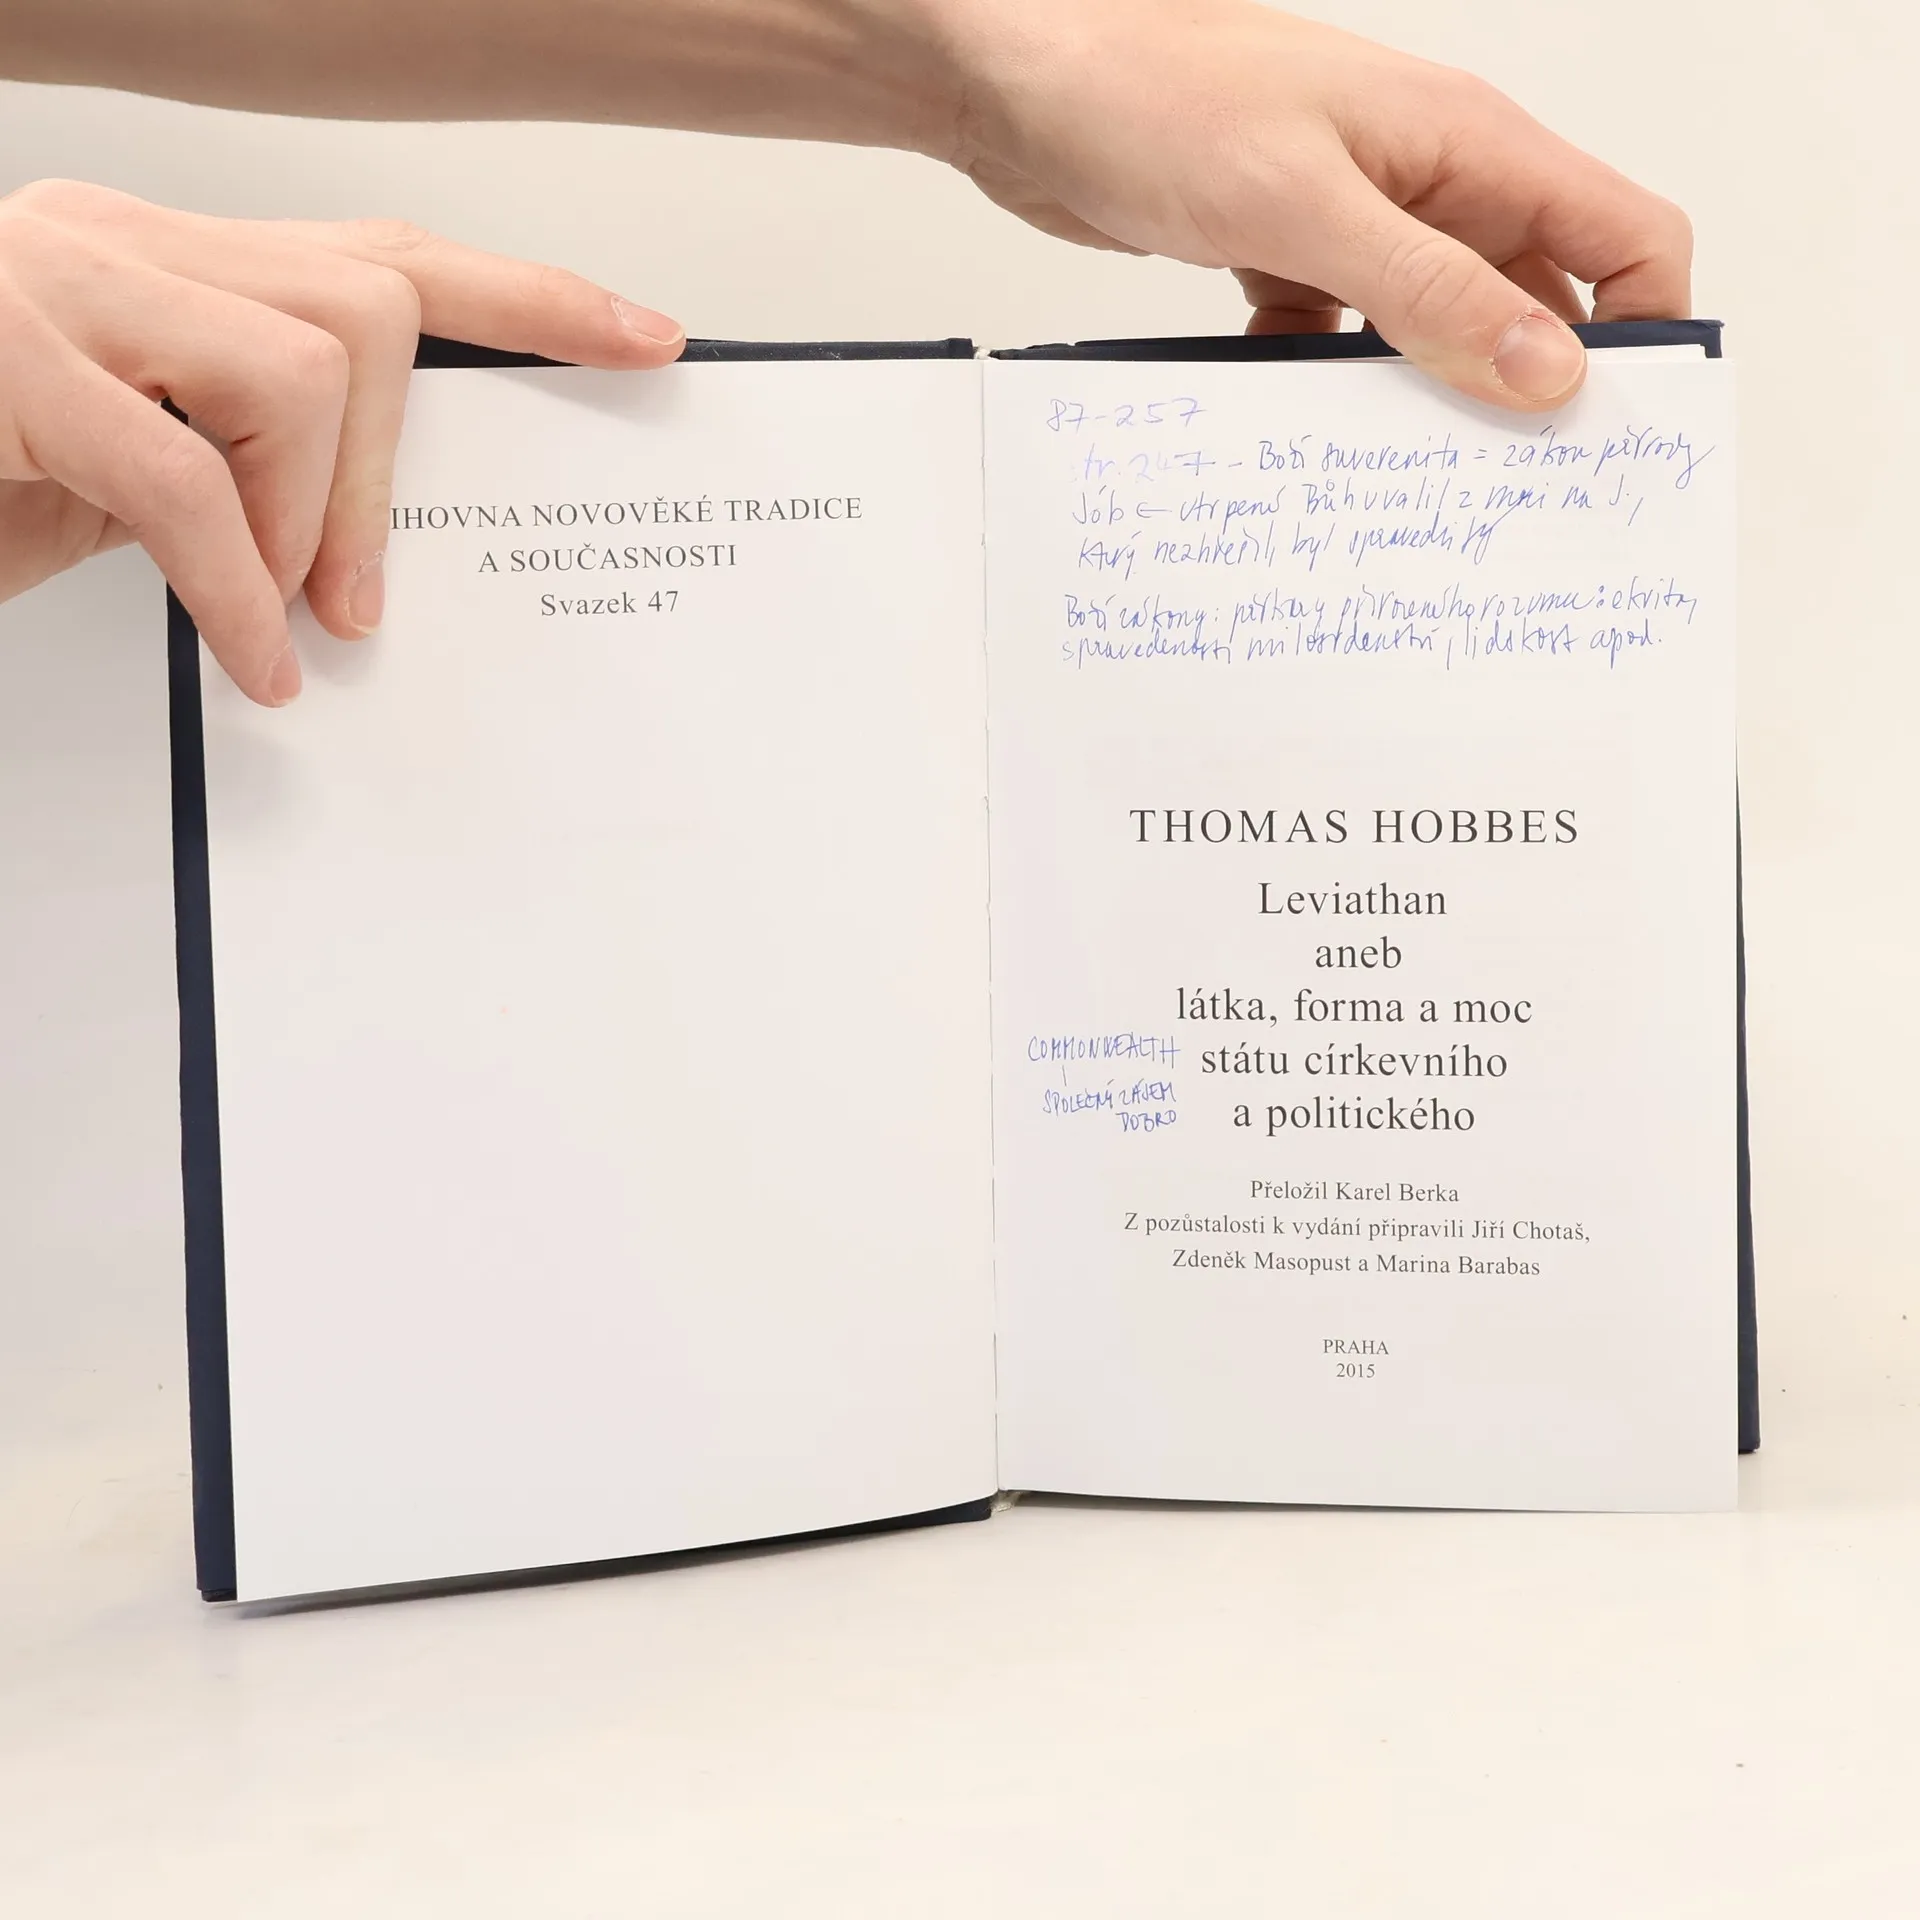 IHOVNA NOVOVĚKÉ TRADICE
A SOUČASNOSTI
Svazek 47
87-257
str. 247 - Boží suverenita = zákon přírody
Jób ← utrpení Bůh uvalil z moci na J.,
který nezhřešil, byl spravedlivý
Boží zákony: příkazy přirozeného rozumu: ekvita,
spravedlnost, milosrdenství, lidskost apod.
THOMAS HOBBES
Leviathan
aneb
látka, forma a moc
státu církevního
a politického
COMMONWEALTH
SPOLEČNÝ ZÁJEM
DOBRO
Přeložil Karel Berka
Z pozůstalosti k vydání připravili Jiří Chotaš,
Zdeněk Masopust a Marina Barabas
PRAHA
2015